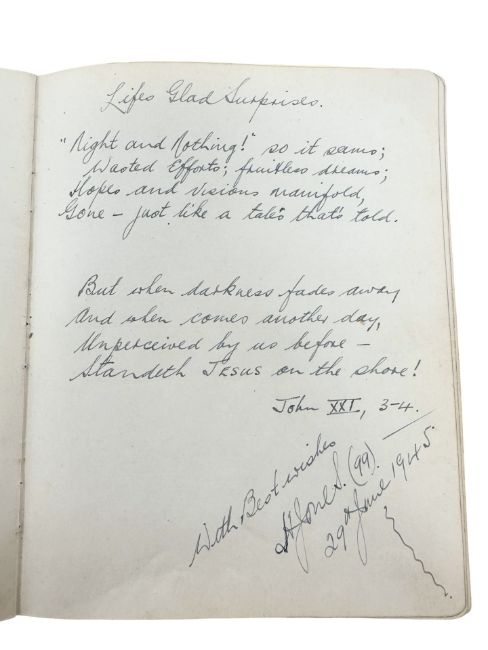 Lifes Glad Surprises.
"Night and Nothing!" so it seems;
Wasted Efforts; fruitless dreams;
Hopes and visions manifold,
Gone - just like a tale's that's told.
But when darkness fades away
And when comes another day,
Unperceived by us before -
Standeth JESUS on the shore!
John XXI, 3-4.
With Best wishes
(99).
29th June 1945.